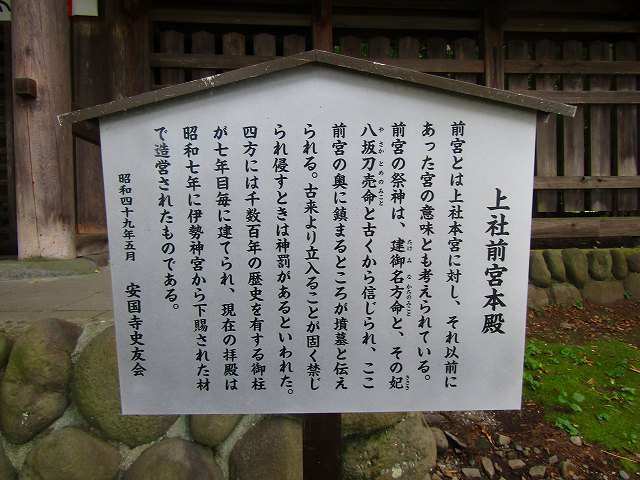 上社前宮本殿
前宮とは上社本宮に対し、それ以前に
あった宮の意味とも考えられている。
前宮の祭神は、建御名方命と、その妃
たけみなかたのみこと
八坂刀売命と古くから信じられ、ここ
やさかとめのみこと
前宮の奥に鎮まるところが墳墓と伝え
られる。古来より立入ることが固く禁じ
られ侵すときは神罰があるといわれた。
四方には千数百年の歴史を有する御柱
が七年目毎に建てられ、現在の拝殿は
昭和七年に伊勢神宮から下賜された材
で造営されたものである。
昭和四十九年五月 安国寺史友会